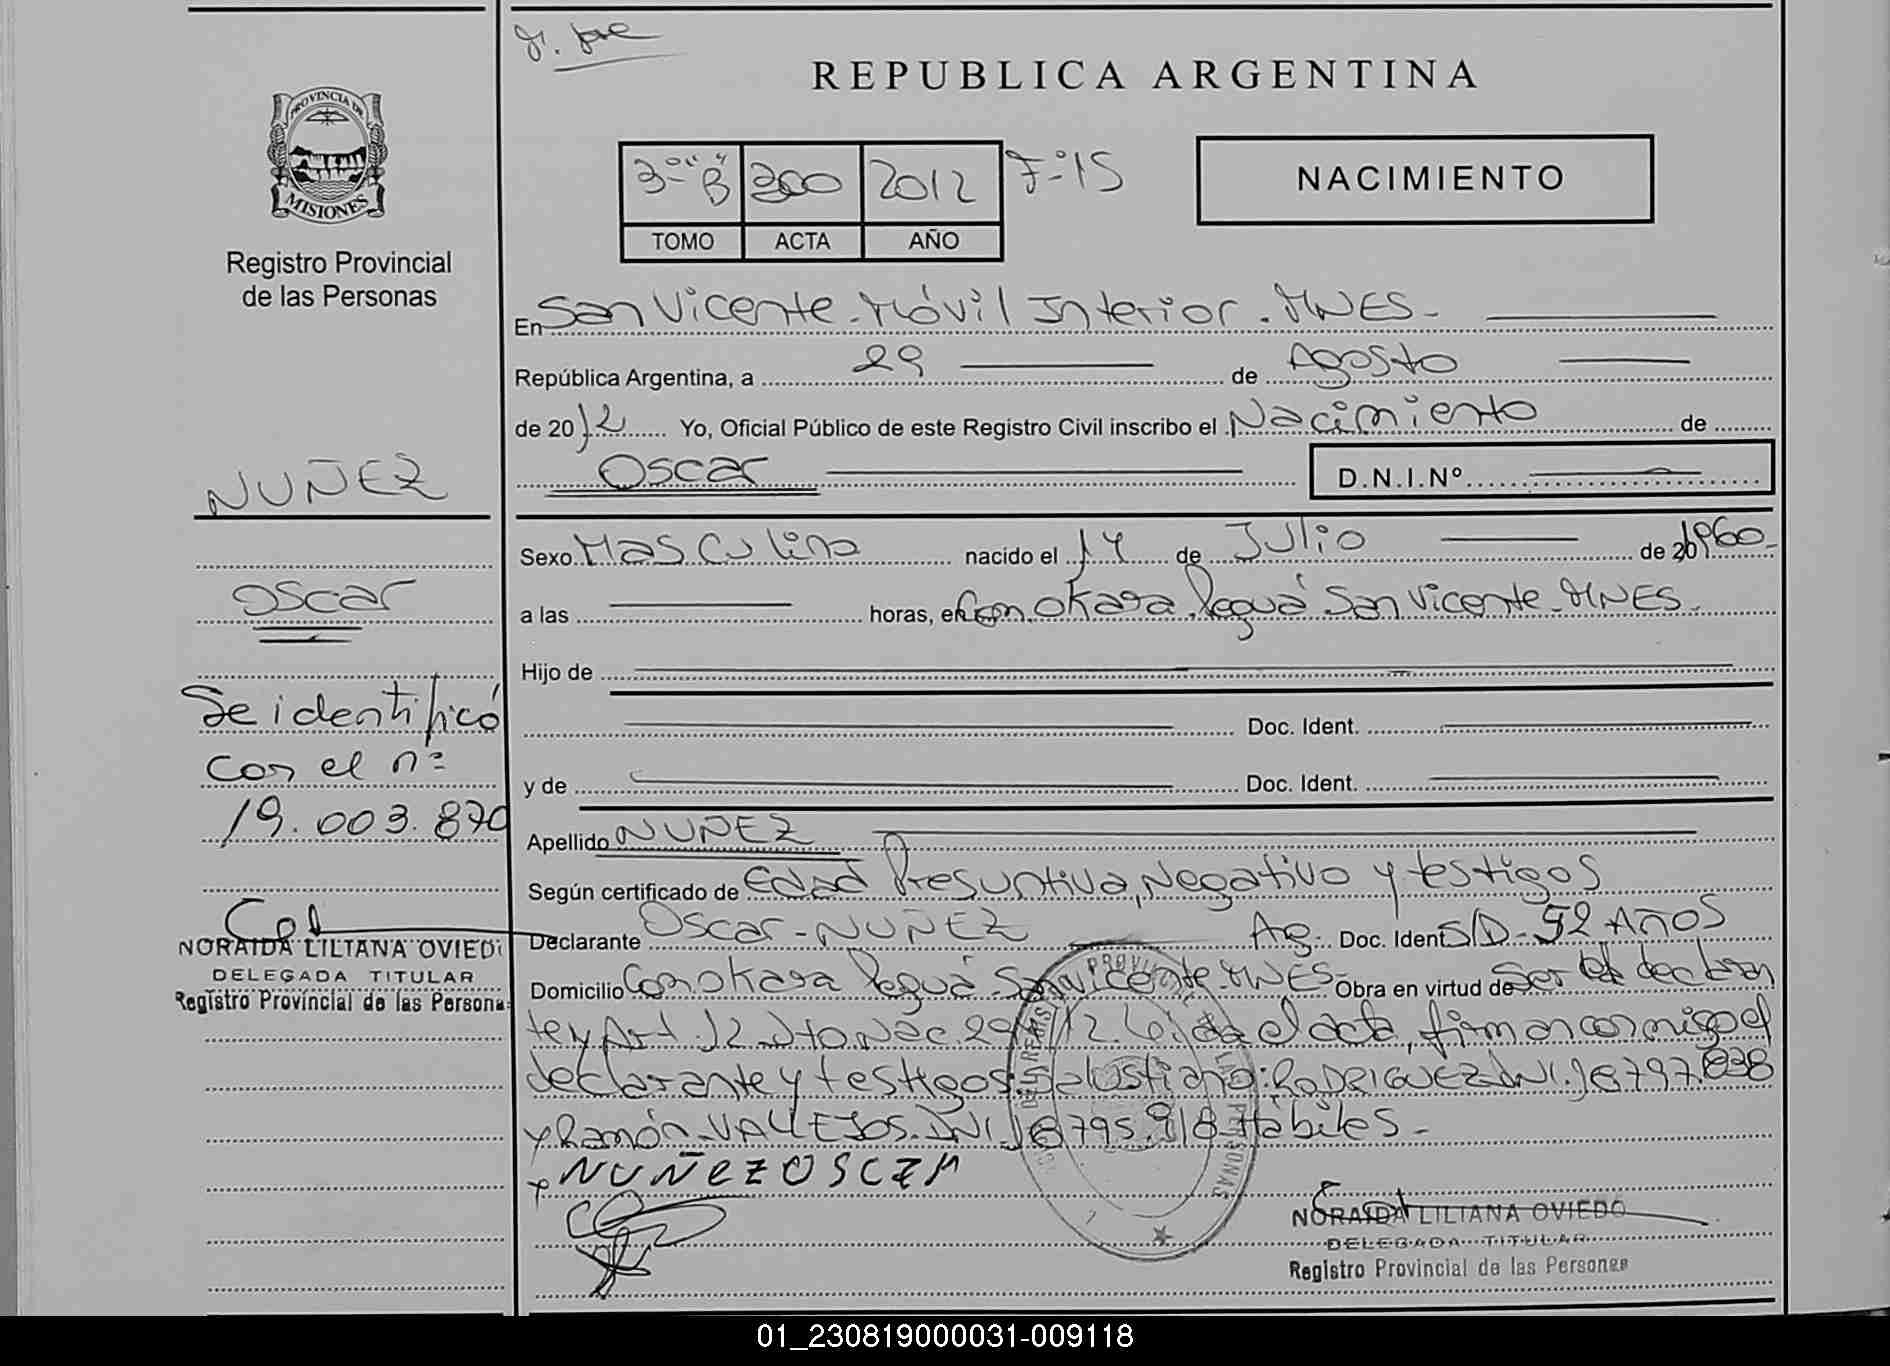 REPUBLICA ARGENTINA
PROVINCIA DE
MISIONES
Registro Provincial
de las Personas
3-º "B" 300 2012 F-º15
TOMO ACTA AÑO
NACIMIENTO
En San Vicente - Móvil Interior. MNES-
República Argentina, a 29 de Agosto
de 2012 Yo, Oficial Público de este Registro Civil inscribo el Nacimiento de
Oscar D.N.I.Nº
NUÑEZ
Oscar
Se identificó
con el nº
19.003.870
NORAIDA LILIANA OVIEDO
DELEGADA TITULAR
Registro Provincial de las Persona
Sexo Masculino nacido el 14 de Julio de 20 1960-
a las horas, en Com. Okara Peguá San Vicente-MNES-
Hijo de
Doc. Ident.
y de Doc. Ident.
Apellido NUÑEZ
Según certificado de Edad Presuntiva, Negativo y testigos
Declarante Oscar-NUÑEZ Ag. Doc. Ident S/D-52 AÑOS
Domicilio Com Okara Peguá San Vicente-MNES- Obra en virtud de Ser el declaran
te y Art. 12 Dto. Nac. 29 /12. Leída el acta, firman conmigo el
declarante y testigos: Salustiano: RODRIGUEZ DNI. 18797.838
y Ramón-VALLEJOS-DNI 18795.918-Hábiles-
NUÑEZ OSCAR
NORAIDA LILIANA OVIEDO
DELEGADA TITULAR
Registro Provincial de las Personas
01_230819000031-009118